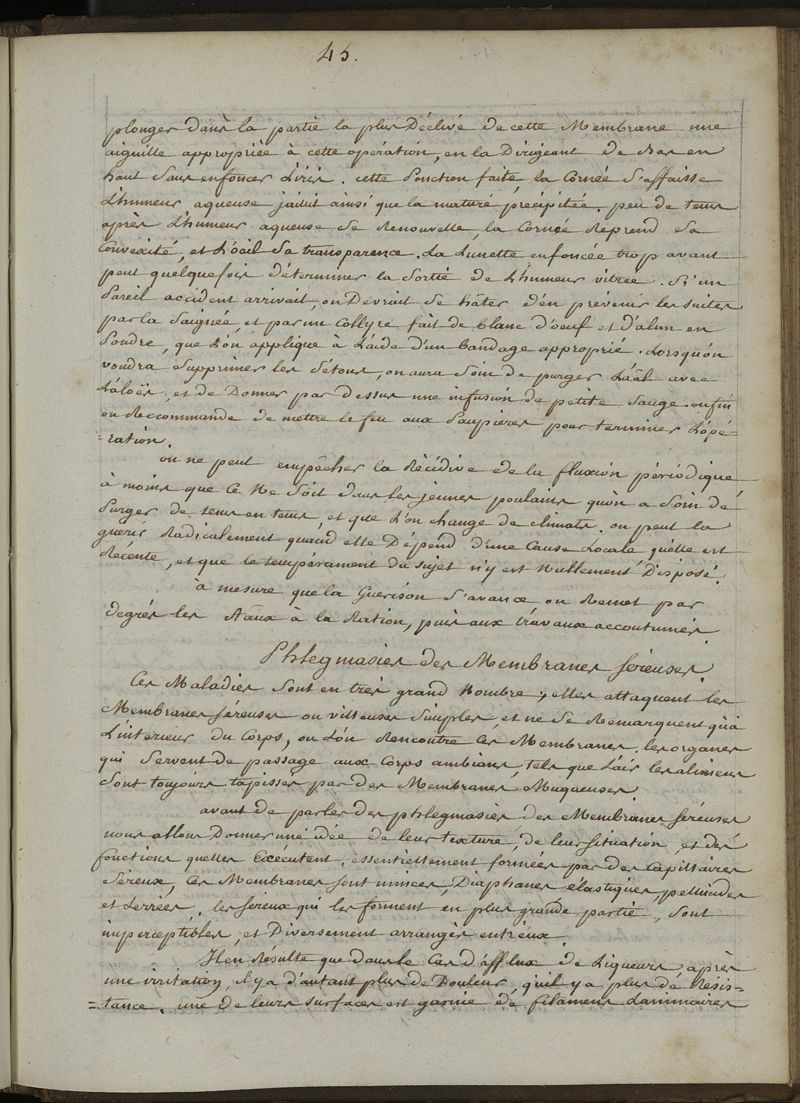 45.
plonger dans la partie la plus Déclive de cette Membrane une
aiguille appropriée à cette opération, en la Dirigeant de Bas en
haut Sans enfoncer L'iris. cette Ponction faite, la Cornée S'affaisse
L'humeur aqueuse jaillit ainsi que la maturé précipitée. peu de tems
après L'humeur aqueuse Se Renouvelle, la Cornée Reprend Sa
Convexité, et L'oeil Sa transparence. La Lunette enfoncée trop avant
peut quelquefois déterminer la Sortie de L'humeur vitrée. Si un
Pareil accident arrivait, on Devrait Se hâter d'en prévenir les Suites
par la Saignée, et par un Collyre fait de blanc d'oeuf et d'alun en
Poudre, que L'on applique à L'aide d'un bandage approprié. Lorsqu'on
voudra Supprimer les Sétons, on aura Soin de purger L'aâl avec
L'aloës, et de Donner par dessus une infusion de petite Sauge. enfin
on Recommande de mettre le feu aux Paupieres pour terminer L'opé=
=ration.
on ne peut empêcher la Récidive de la fluxion périodique
à moins que Ce Ne Soit dans les jeunes poulains qu'on a Soin de
Purger de tems en tems, et que L'on change de climats. on peut la
guérir Radicalement quand elle Dépend d'une Cause Locale qu'elle est
Récente, et que le tempérament du Sujet n'y est Nullement Disposé.
à mesure que la Guerison S'avance on Remet par
degrés les Aâux à la Ration, puis aux travaux accoutumés.
Phlegmasies des Membranes Séreuses.
Ces Maladies Sont en très grand Nombre, elles attaquent les
Membranes Séreuses ou villeuses Simples, et ne Se Remarquent qu'à
L'intérieur du Corps, ou L'on Rencontre Ces Membranes. les organes
qui Servent de passage aux Corps ambians, tels que L'air les alimens
Sont toujours tapissés par des Membranes Muqueuses.
avant de parler des phlegmasies des Membranes Séreuses
nous allons Donner une idée de leur texture, de leur Situation, et des
fonctions qu'elles Exécutent. essentiellement formées par des Capillaires
Séreux, Ces Membranes sont minces, Diaphanes élastiques, pellucides
et Serrées. les Séreux qui les forment en plus grande partie, Sont
imperceptibles, et Diversement arrangés entr'eux.
Il en Résulte que dans le Cas d'afflux de Liqueurs, après
une irritation, il y a d'autant plus de Douleur, qu'il y a plus de Résis=
=tance. une de leurs Surfaces est garnie de filamens Laminaires